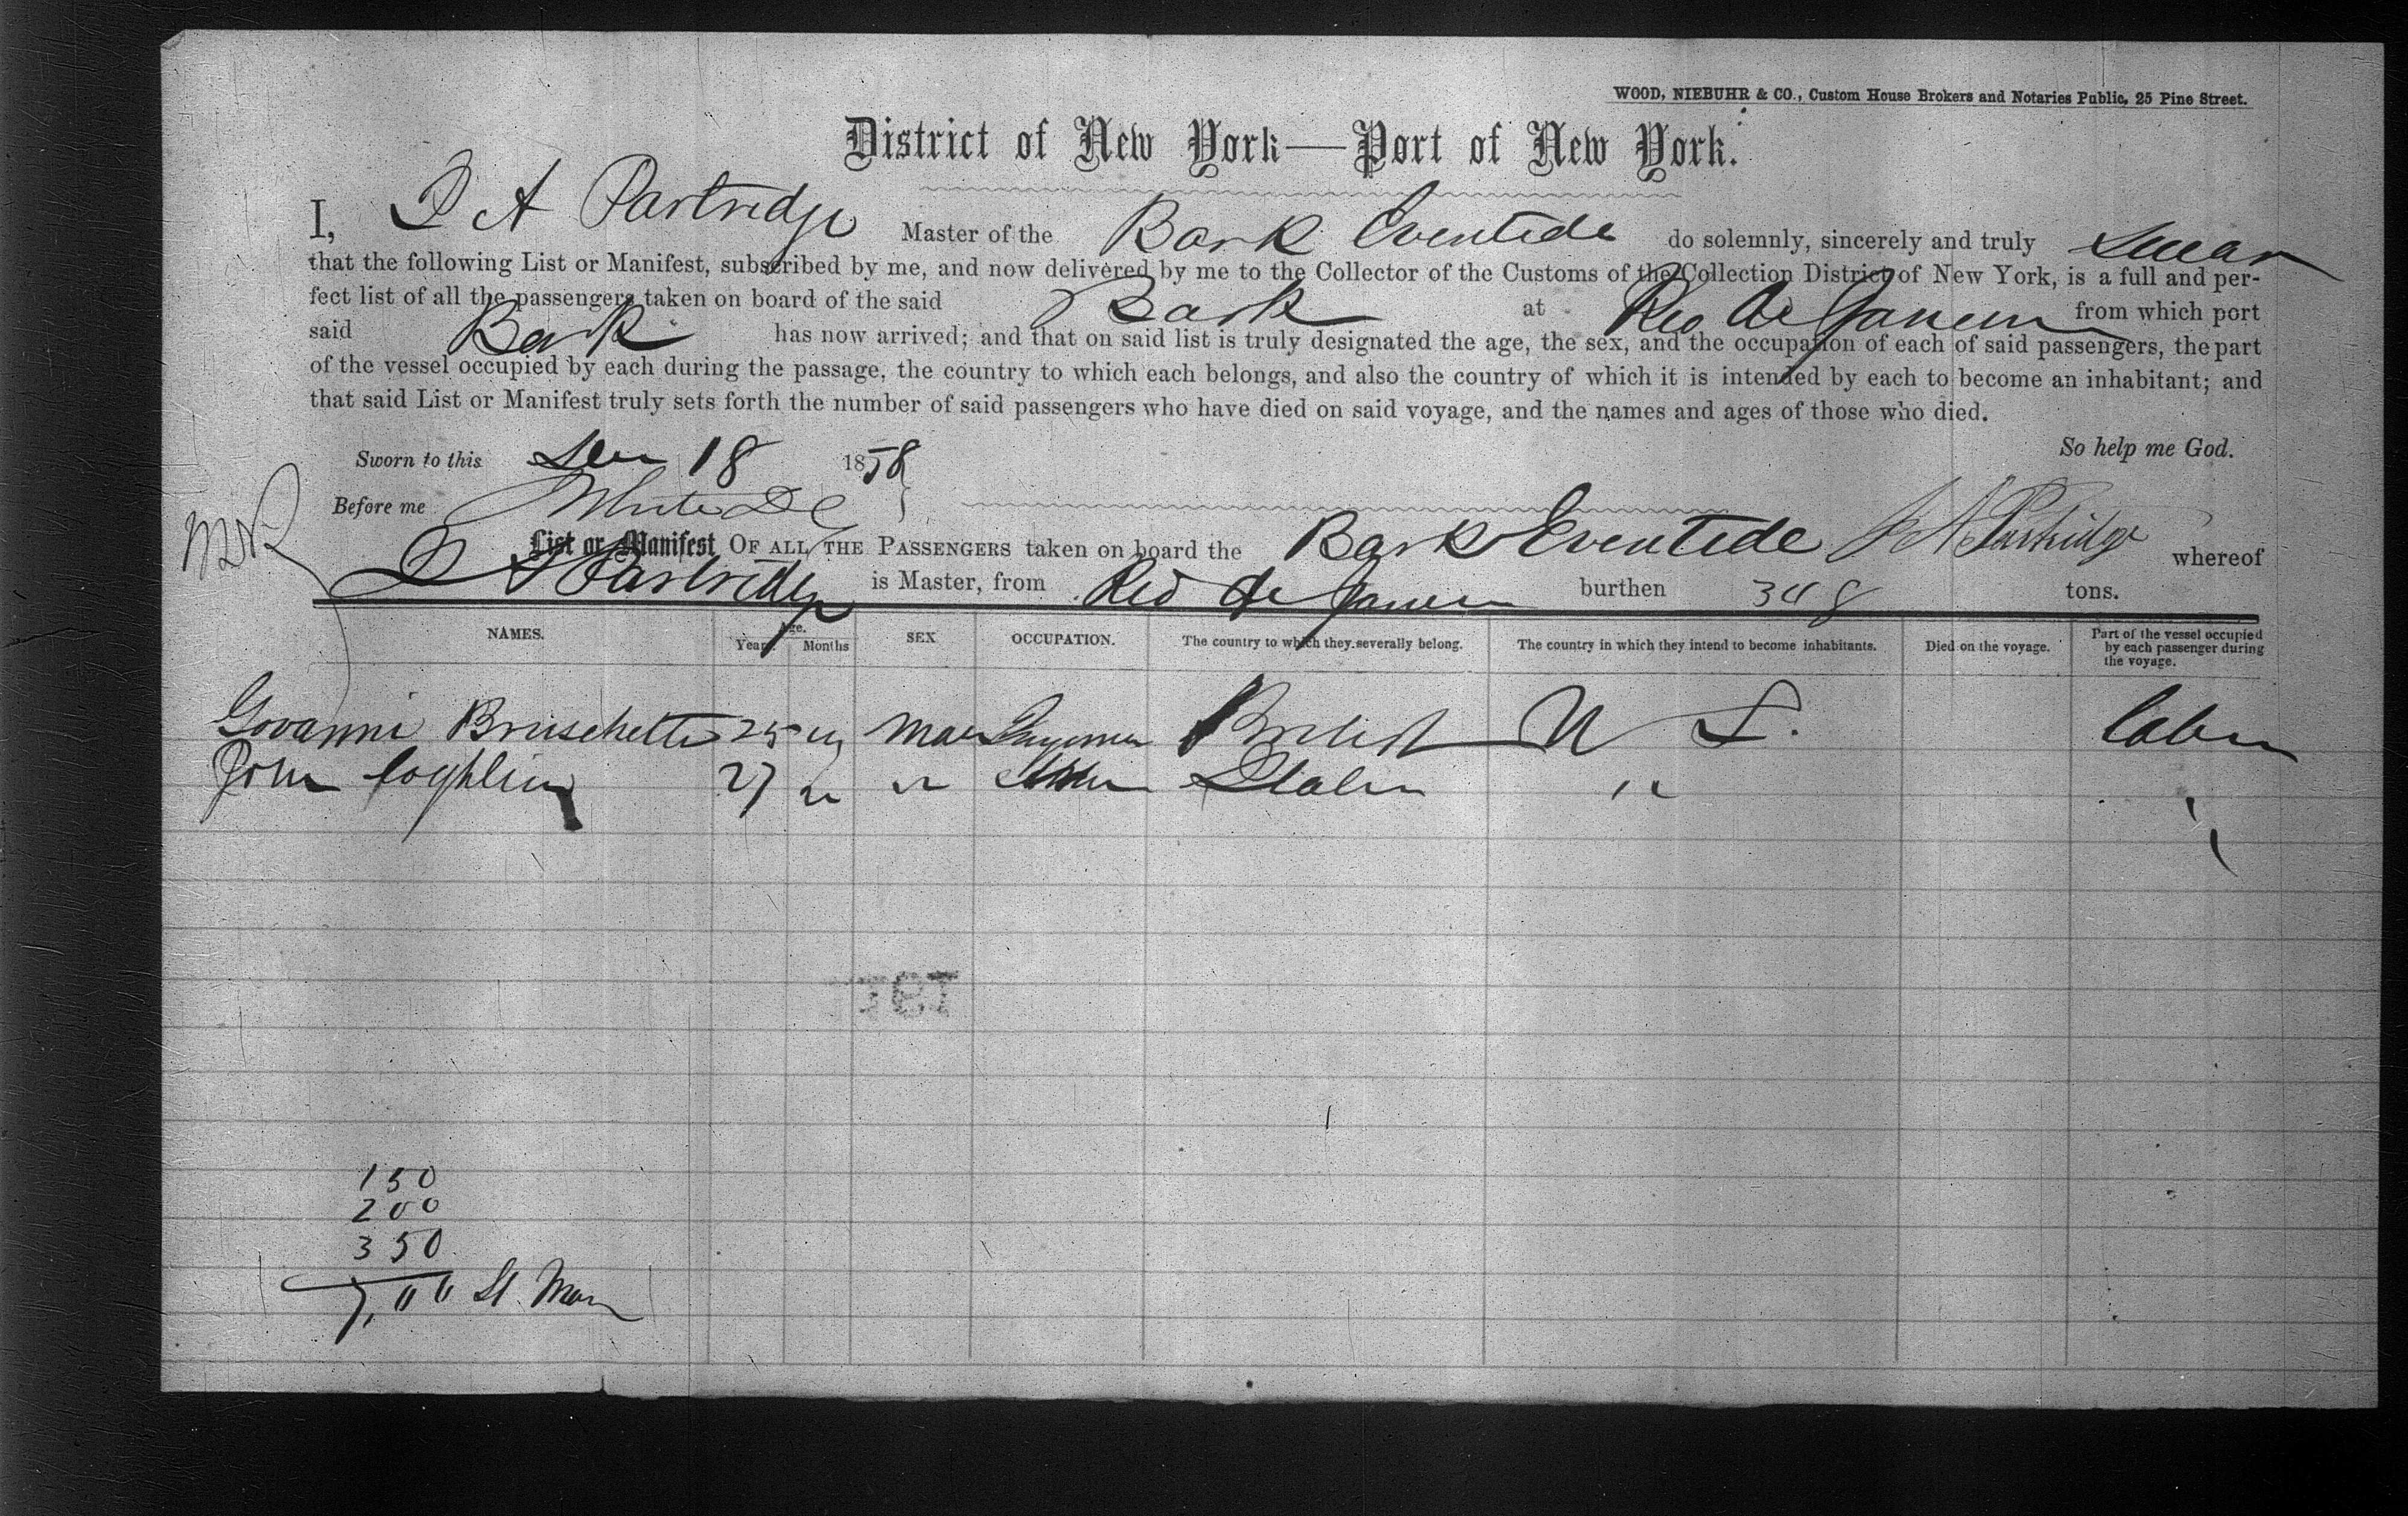 WOOD, NIEBUHR & CO., Custom House Brokers and Notaries Public, 25 Pine Street.
District of New York—Port of New York.
I, A Partridge Master of the Bark Eventide do solemnly, sincerely and truly Swear
that the following List or Manifest, subscribed by me, and now delivered by me to the Collector of the Customs of the Collection District of New York, is a full and per-
fect list of all the passengers taken on board of the said Bark at Rio de Janeiro from which port
said Bark has now arrived; and that on said list is truly designated the age, the sex, and the occupation of each of said passengers, the part
of the vessel occupied by each during the passage, the country to which each belongs, and also the country of which it is intended by each to become an inhabitant; and
that said List or Manifest truly sets forth the number of said passengers who have died on said voyage, and the names and ages of those who died.
So help me God.
Sworn to this 18 1858
Before me White
List or Manifest OF ALL THE PASSENGERS taken on board the Bark Eventide A Partridge whereof
Partridge is Master, from Rio de Janeiro burthen 348 tons.
NAMES. Age. Years. Months SEX OCCUPATION. The country to which they severally belong. The country in which they intend to become inhabitants. Died on the voyage. Part of the vessel occupied by each passenger during the voyage.
Govanni Bruschette 25 British U S. Cabin
John Coghlin 27 " Italian "
191
150
200
350
7,00